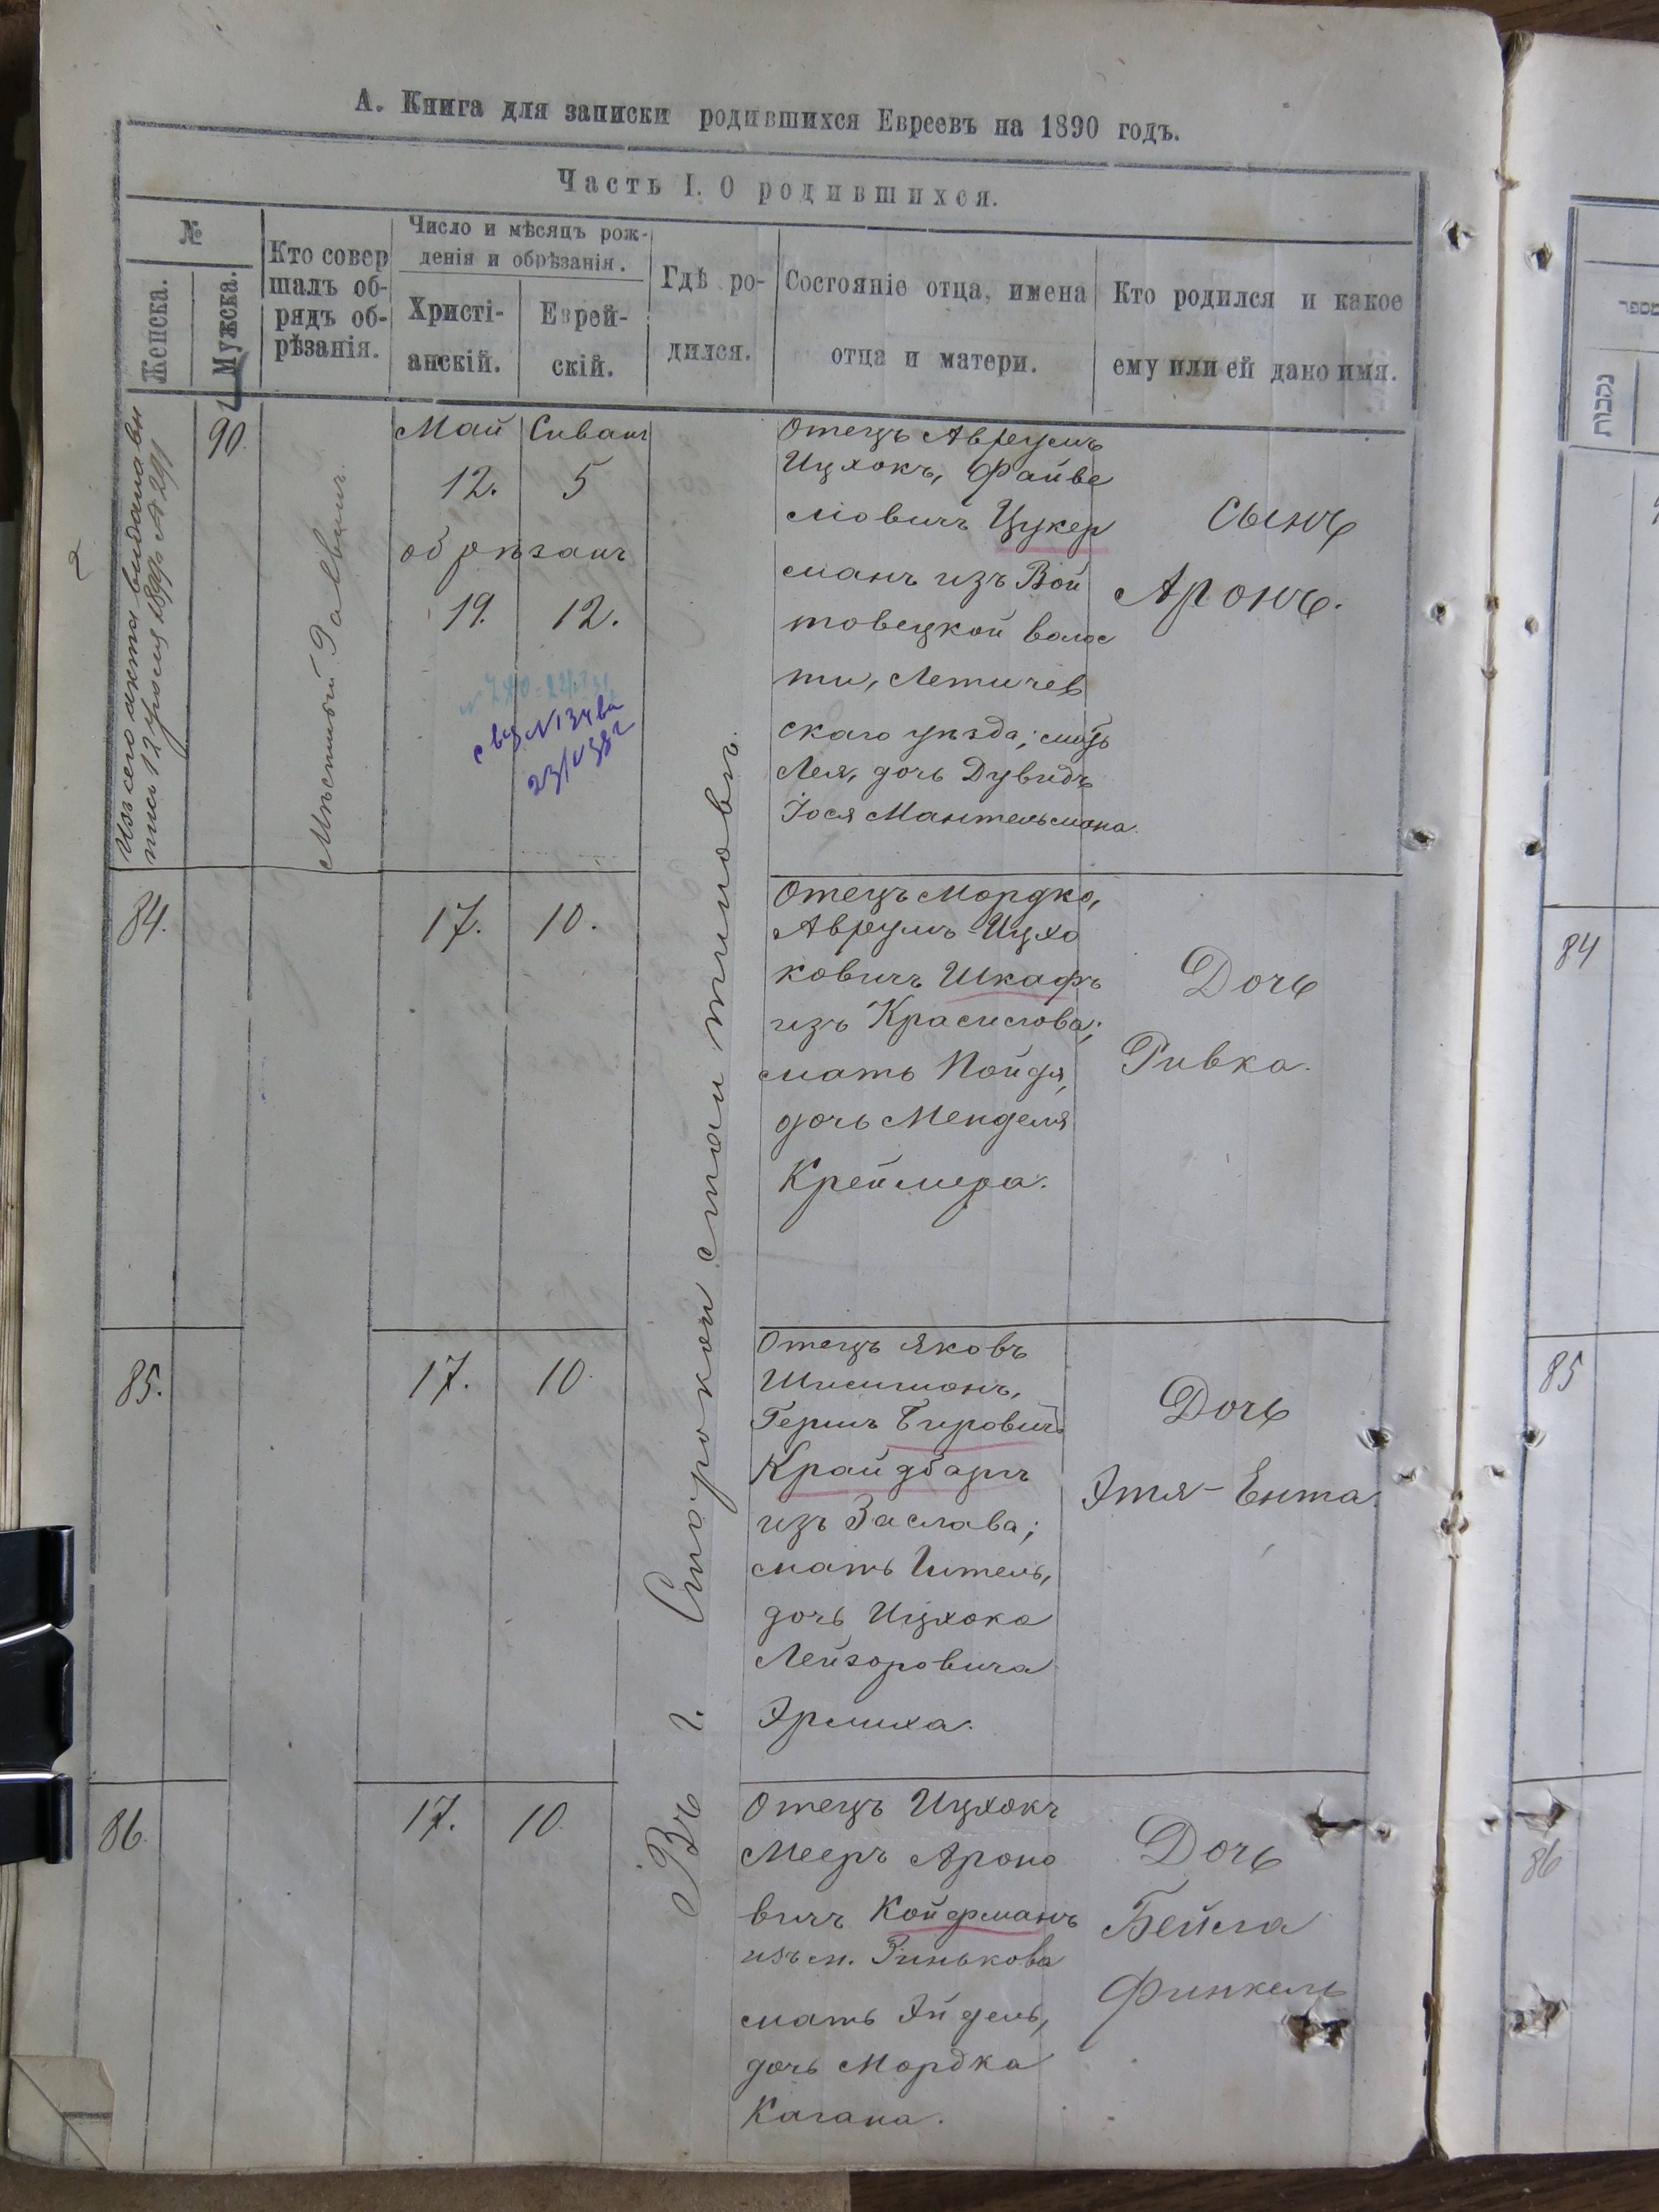 А. Книга для записки родившихся Евреевъ на 1890 годъ.
Часть I. О родившихся.
№
Женска.
Мужска.
Кто совер
шалъ об-
рядъ об-
рѣзанія.
Число и мѣсяцъ рож-
денія и обрѣзанія.
Христі-
анскій.
Еврей-
скій.
Гдѣ ро-
дился.
Состояніе отца, имена
отца и матери.
Кто родился и какое
ему или ей дано имя.
Изъ сего акта видана вы
пись 12
90.
Мѣстный Равинъ.
Май
Сиванъ
12.
5
обрѣзанъ
19.
12.
23/V 38 г
Въ г. Староконстантиновѣ.
Отецъ Аврумъ
Ицхокъ, Файве
ліовичъ Цукер
манъ изъ Вой
товецкой волос
ти, Летичев
скаго уѣзда; мать
Лея, дочь Дувидъ
Іося Мантельмана.
Сынъ
Аронъ.
84.
17.
10.
Отецъ Мордко,
Аврумъ-Ицхо
ковичъ Шкафъ
изъ Красилова;
мать Пойдя,
дочь Менделя
Креймера.
Дочь
Ривка.
85.
17.
10.
Отецъ Яковъ
Шисимонъ,
Гершъ Беровичъ
Крайдбаръ
изъ Заслава;
мать Гитель,
дочь Ицхока
Лейзоровича
Эрлиха.
Дочь
Этя-Ента.
86.
17.
10.
Отецъ Ицхокъ
Мееръ Ароно
вичъ Койфманъ
изъ м. Зинькова
мать Эйдель,
дочь Мордка
Кагана.
Дочь
Бейла
Финкель
נקבות
84
85
86